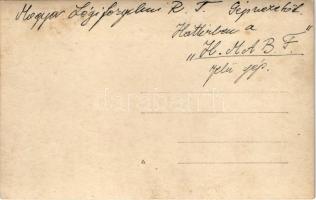 Magyar Légiforgalmi R. T. Gépvezetők.
Háttérben a
"H. M A B F."
jelü gép.